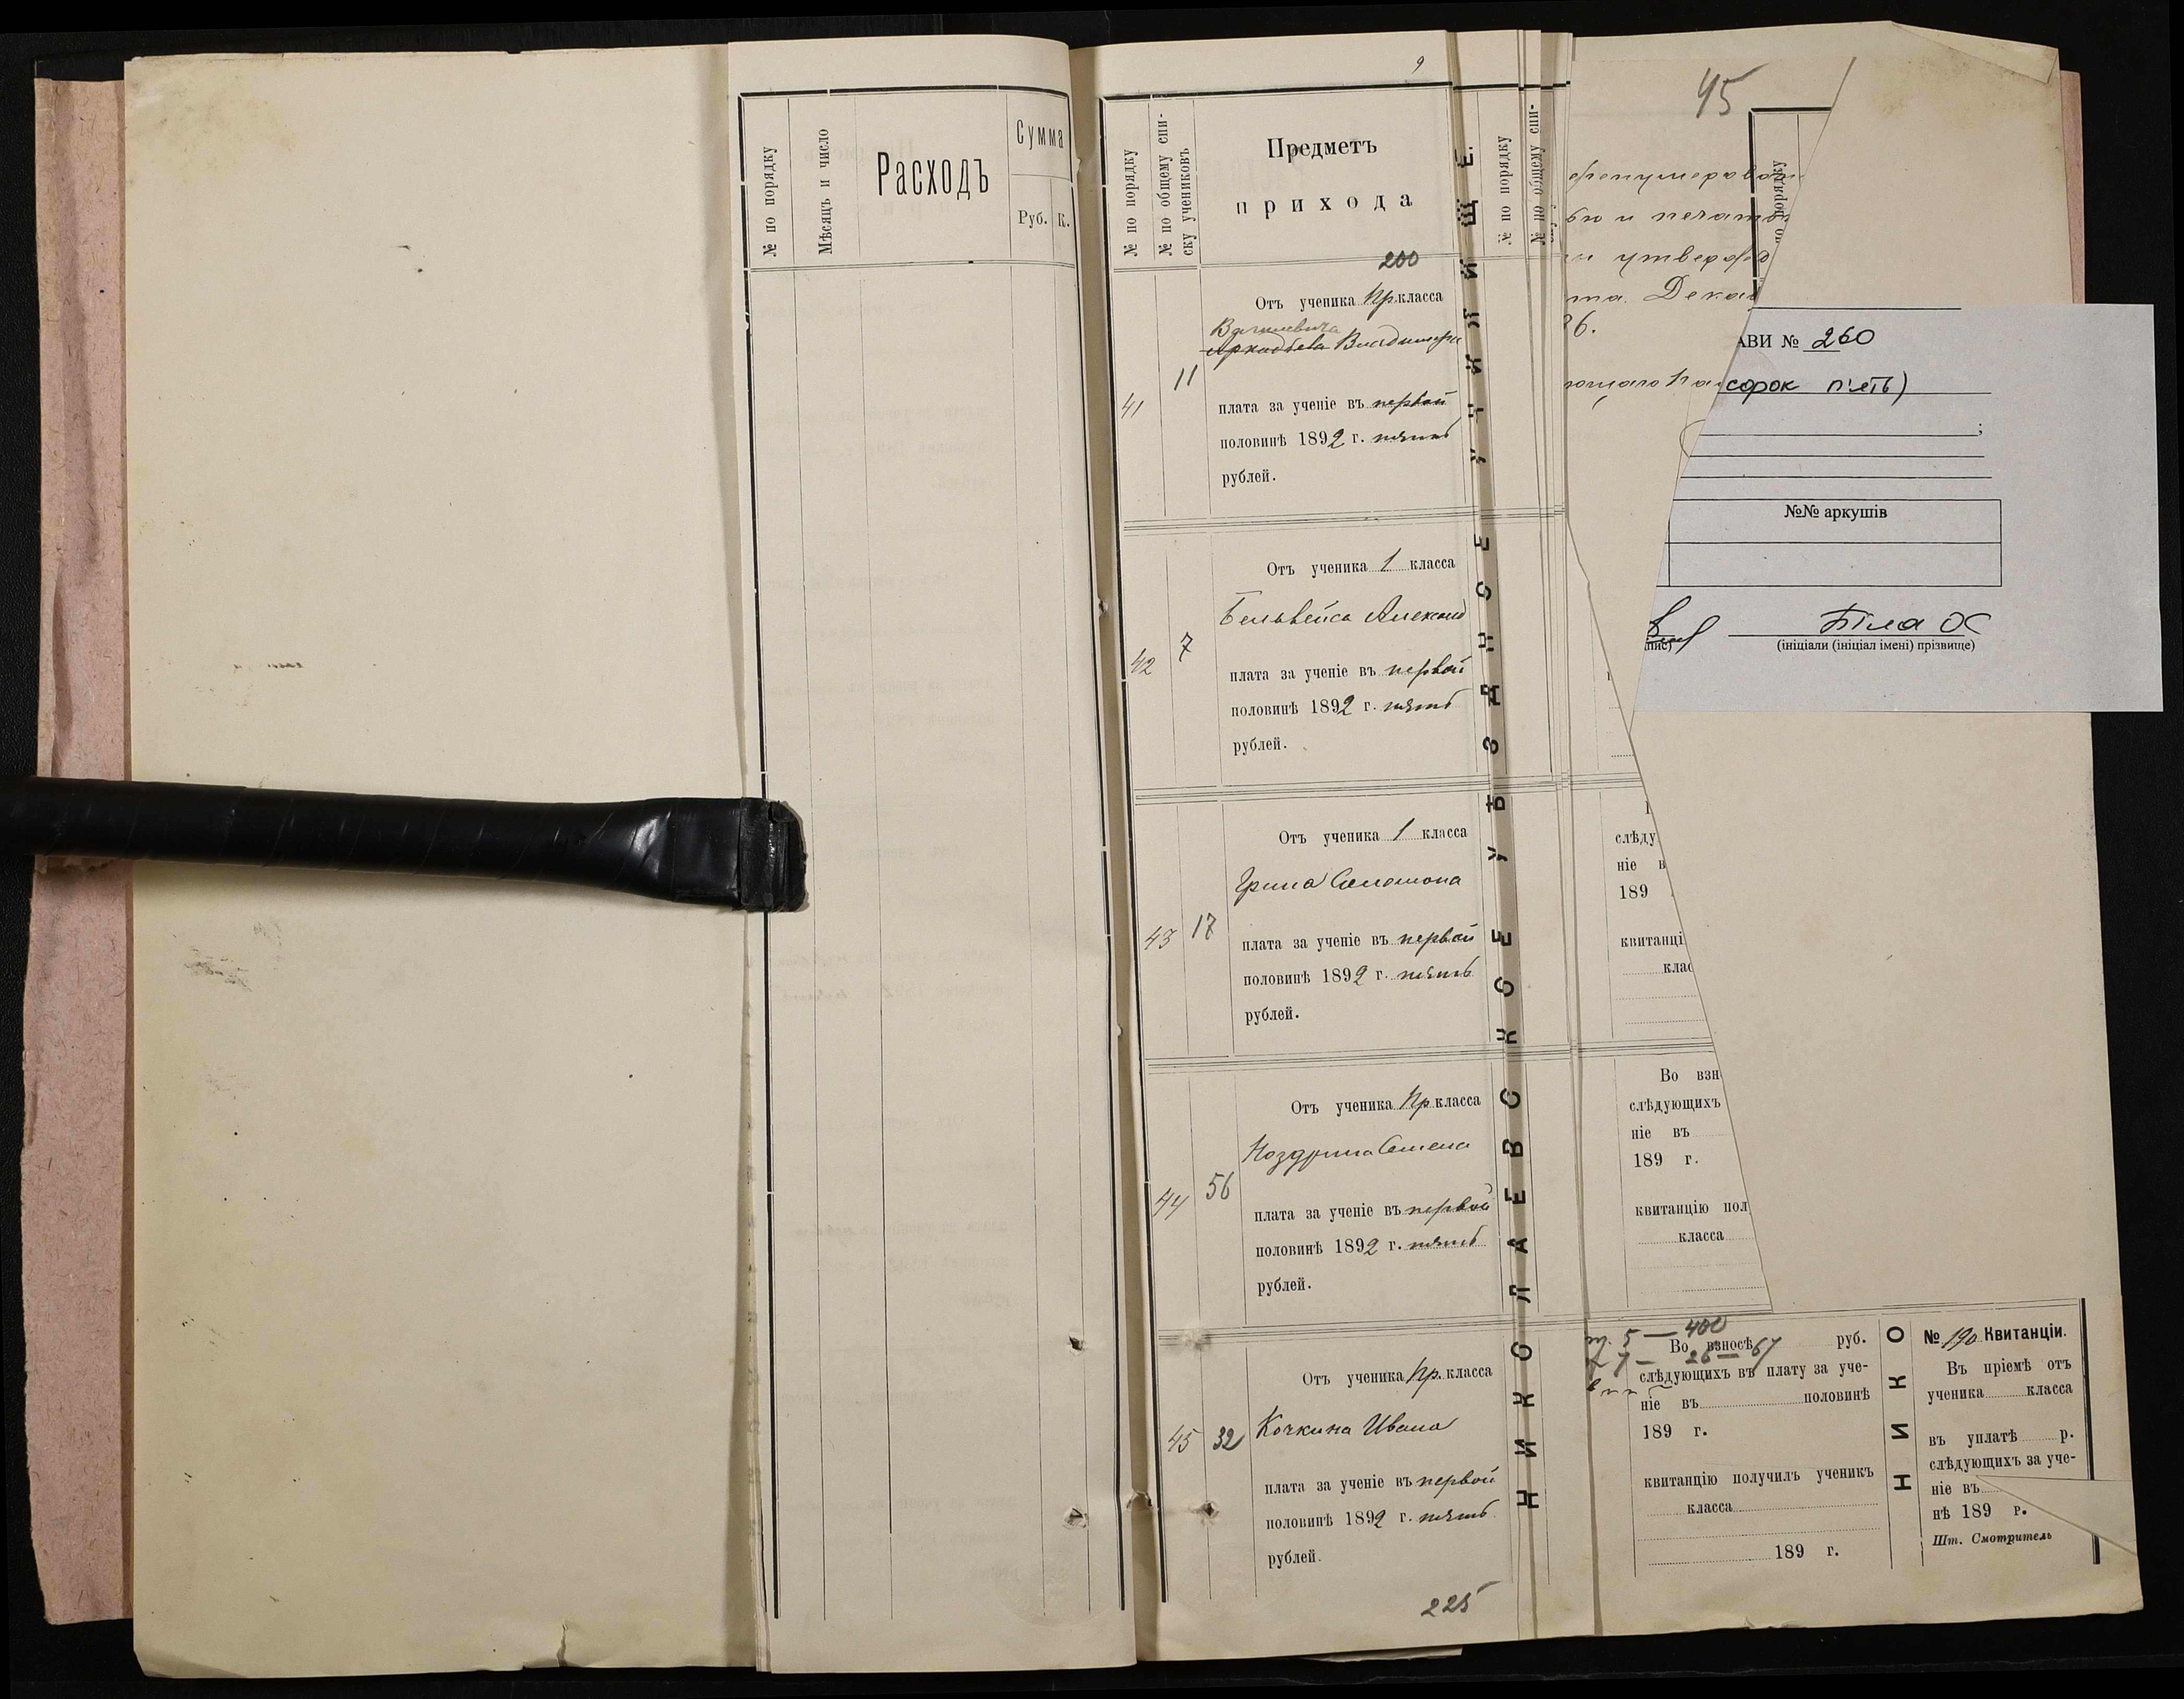 № по порядку
Мѣсяцъ и число
Расходъ
Сумма
Руб. К.
9
№ по порядку
№ по общему спи-
ску учениковъ
Предметъ
прихода
200
41
11
Отъ ученика Пр. класса
Владимира
плата за ученіе въ первой
половинѣ 1892 г. пять
рублей.
42
7
Отъ ученика 1 класса
Бельвейса Александ
плата за ученіе въ первой
половинѣ 1892 г. пять
рублей.
43
17
Отъ ученика 1 класса
Грина Соломона
плата за ученіе въ первой
половинѣ 1892 г. пять
рублей.
44
56
Отъ ученика Пр. класса
Ноздрина Семена
плата за ученіе въ первой
половинѣ 1892 г. пять
рублей.
45
32
Отъ ученика Пр. класса
Кочкина Ивана
плата за ученіе въ первой
половинѣ 1892 г. пять
рублей.
225
НИКОЛАЕВСКОЕ УѢЗДНОЕ УЧИЛИЩЕ.
№ по порядку
№ по общему спи-
45
по порядку
и печать
утвержд
та. Декаб
26.
АВИ № 260
сорок п'ять)
;
№№ аркушів
Біла О
(ініціали (ініціал імені) прізвище)
слѣду
ніе в
189
квитанці
клас
Во взн
слѣдующихъ
ніе въ
189 г.
квитанцію пол
класса
5 — 400
7 — 26 — 67
Во взносѣ руб.
слѣдующихъ въ плату за уче-
ніе въ половинѣ
189 г.
квитанцію получилъ ученикъ
класса
189 г.
НИКО
№ 190 Квитанціи.
Въ пріемѣ отъ
ученика класса
въ уплатѣ р.
слѣдующихъ за уче-
ніе въ
нѣ 189 г.
Шт. Смотритель